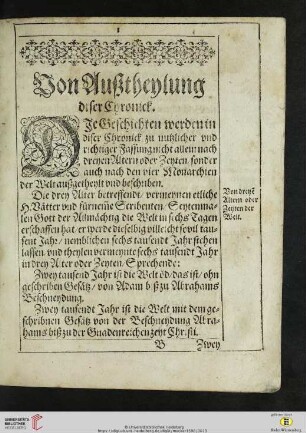 Von Außtheylung
diser Cyronick.
DJe Geschichten werden in
diser Chronick zu nutzlicher vnd
richtiger Fassung/nicht allein nach
dreyen Altern oder Zeyten, sonder
auch nach den vier Monarchien
der Welt außgetheylt vnd beschriben.
Die drey Alter betreffendt/ vermeynen etliche
H. Vätter vnd fürneme Scribenten, Seytenma-
len Gott der Allmächtig die Welt in sechs Tagen
erschaffen hat, er werde dieselbig villeicht sovil tau-
sent Jahr/ nemblichen sechs tausendt Jahr stehen
lassen/ vnd theylen vermeynte sechs tausendt Jahr
in drey Alter oder Zeyten/ Sprechende:
Zwey tausend Jahr ist die Welt öd/ das ist/ ohn
geschriben Gesätz/ von Adam biß zu Abrahams
Beschneydung.
Zwey tausendt Jahr ist die Welt mit dem ge-
schribnen Gesätz von der Beschneydung Abra-
hams biß zu der Gnadenreichen zeyt Christi.
B Zwey
Von dreyen
Altern oder
Zeyten der
Welt.
UNIVERSITÄTS-
BIBLIOTHEK
HEIDELBERG
Baden-Württemberg